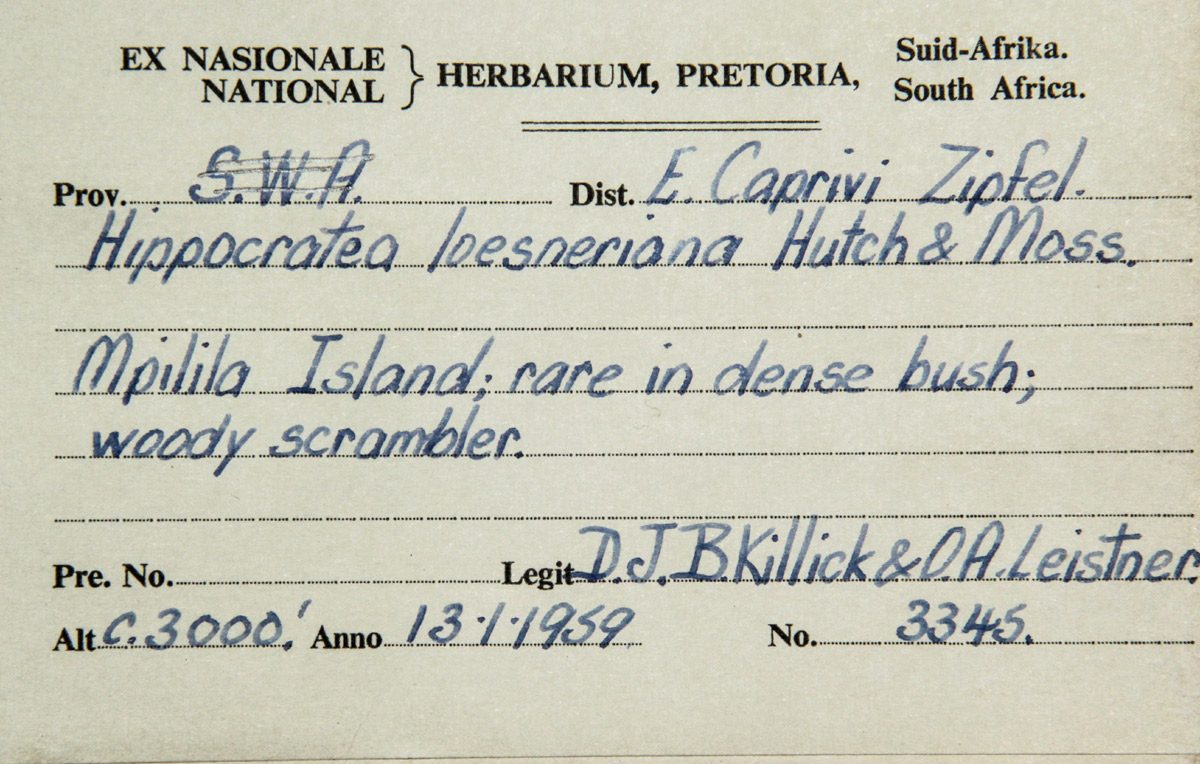 EX NASIONALE
NATIONAL } HERBARIUM, PRETORIA, Suid-Afrika.
South Africa.
Prov. S.W.A. Dist. E. Caprivi Zipfel.
Hippocratea loesneriana Hutch & Moss.
Mpilila Island; rare in dense bush;
woody scrambler.
Pre. No. Legit D.J.B.Killick & O.A.Leistner.
Alt c.3000.' Anno 13.1.1959 No. 3345.